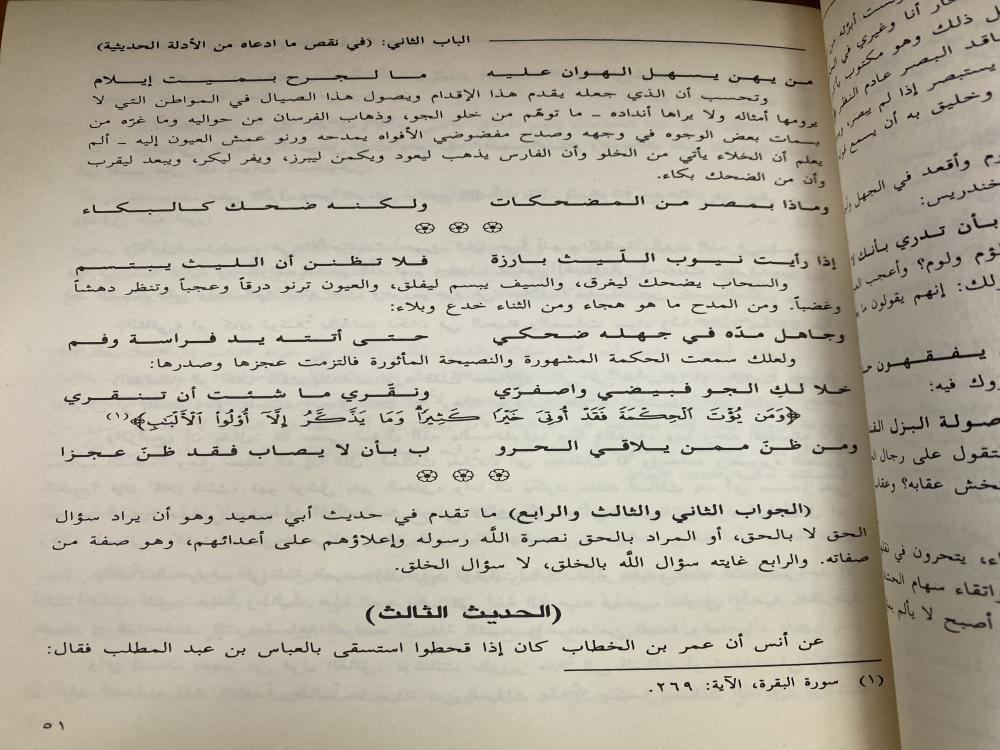 الباب الثاني: (في نقص ما ادعاه من الأدلة الحديثية)
من يهن يسهل الهوان عليه ما لجرح بميت إيلام
وتحسب أن الذي جعله يقدم هذا الإقدام ويصول هذا الصيال في المواطن التي لا
يرومها أمثاله ولا يراها أنداده ـ ما توهّم من خلو الجو، وذهاب الفرسان من حواليه وما غرّه من
بسمات بعض الوجوه في وجهه وصدح مفضوضي الأفواه يمدحه ورنو عمش العيون إليه ـ ألم
يعلم أن الخلاء يأتي من الخلو وأن الفارس يذهب ليعود ويكمن ليبرز، ويفر ليكر، ويبعد ليقرب
وأن من الضحك بكاء.
وماذا بمصر من المضحكات ولكنه ضحك كالبكاء
إذا رأيت نيوب اللّيث بارزة فلا تظنن أن الليث يبتسم
والسحاب يضحك ليغرق، والسيف يبسم ليفلق، والعيون ترنو درقاً وعجباً وتنظر دهشاً
وغضباً. ومن المدح ما هو هجاء ومن الثناء خدع وبلاء:
وجاهل مدّه في جهله ضحكي حتى أتته يد فراسة وفم
ولعلك سمعت الحكمة المشهورة والنصيحة المأثورة فالتزمت عجزها وصدرها:
خلا لكِ الجو فبيضي واصفرّي ونقّري ما شئت أن تنقري
﴿وَمَن يُؤْتَ الْحِكْمَةَ فَقَدْ أُوتِيَ خَيْرًا كَثِيرًا وَمَا يَذَّكَّرُ إِلَّا أُوْلُوا الْأَلْبَابِ﴾(١)
ومن ظنّ ممن يلاقي الحرو ب بأن لا يصاب فقد ظنّ عجزا
(الجواب الثاني والثالث والرابع) ما تقدم في حديث أبي سعيد وهو أن يراد سؤال
الحق لا بالحق، أو المراد بالحق نصرة اللّه رسوله وإعلاؤهم على أعدائهم، وهو صفة من
صفاته. والرابع غايته سؤال اللّه بالخلق، لا سؤال الخلق.
(الحديث الثالث)
عن أنس أن عمر بن الخطاب كان إذا قحطوا استسقى بالعباس بن عبد المطلب فقال:
(١) سورة البقرة، الآية: ٢٦٩.
٥١
أنا وغيري في
ذلك وهو مكتوب
البصر عادم النظر
يستبصر إذا لم يبصر
وخليق به أن يسمع
وأقعد في الجهل
خندريس:
بأن تدري بأنك
لؤم ولوم؟ وأعجب
إنهم يقولون ما
يفقهون
فيه:
صولة البزل
على رجال
عقابه؟
يتحرون في
اتقاء سهام
أصبح لا يألم